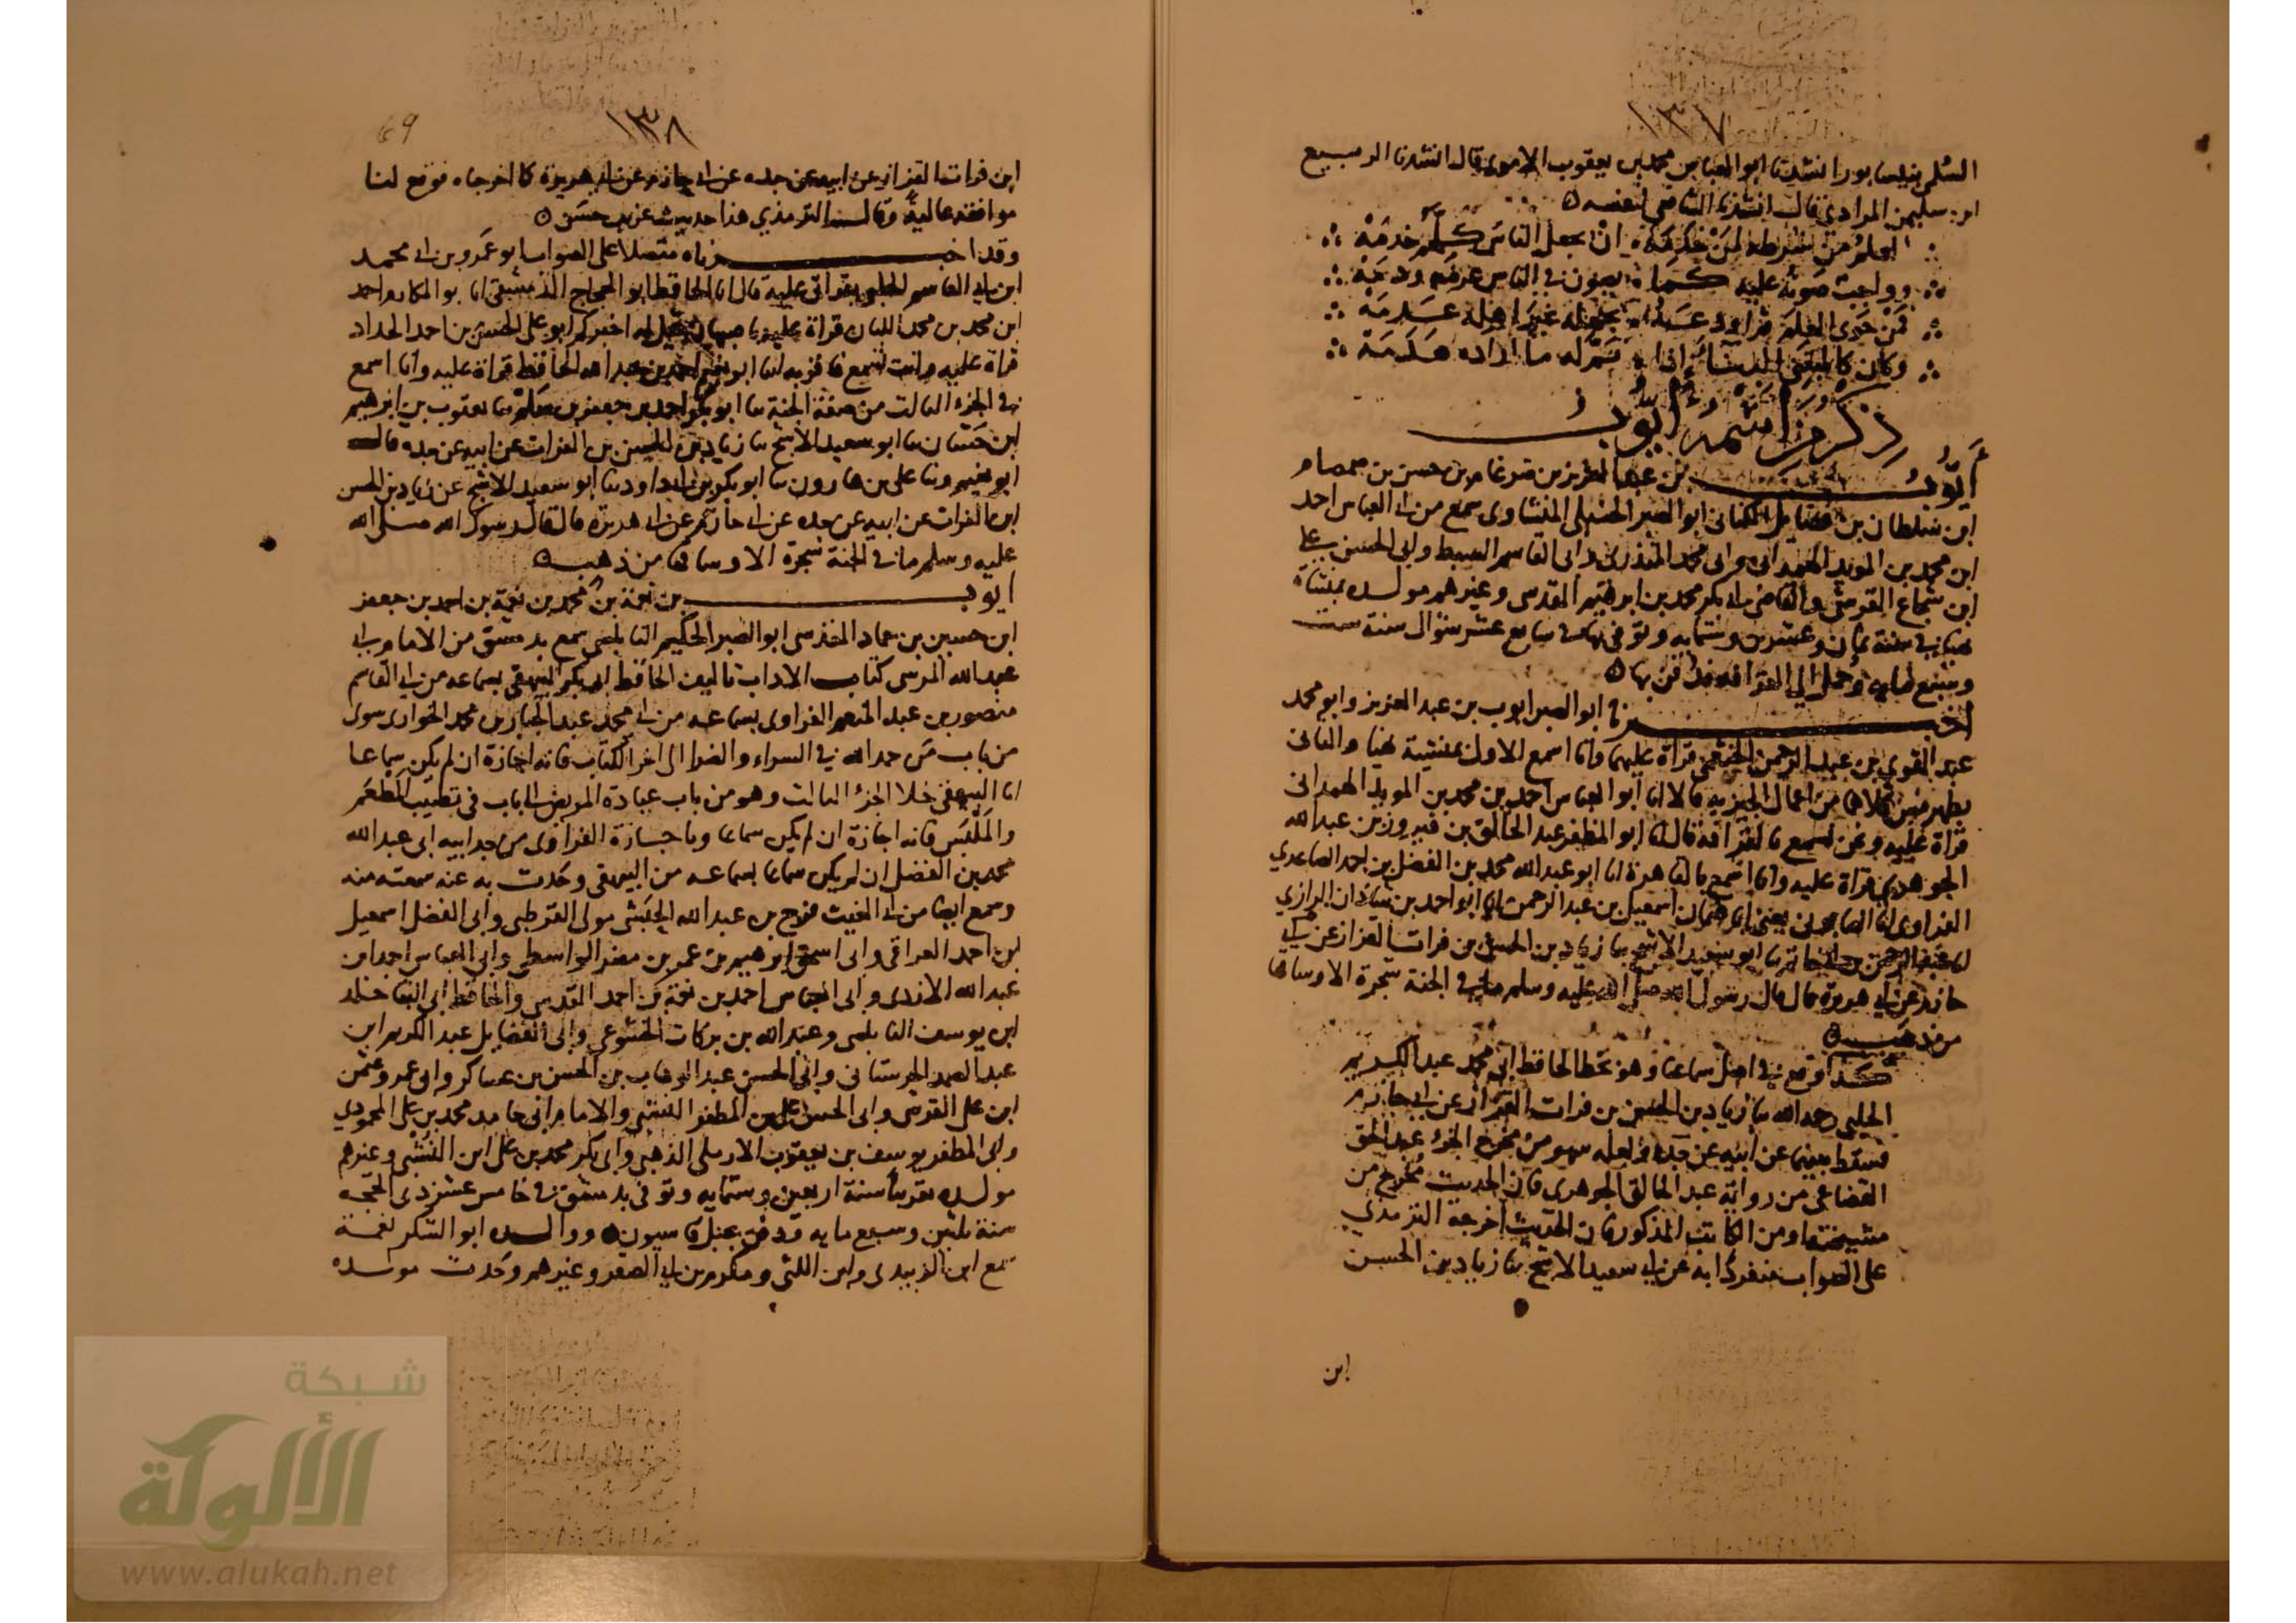 ١٣٧
السلمي بنيسابور انشدنا ابو العباس محمد بن يعقوب الاموي قال انشدنا الربيع
ابن سليمن المرادي قال انشدنا الشافعي لنفسه
العلم من شرطه لمن خدمه ان يجعل الناس كلهم خدمه
وواجب صونه عليه كما يصون في الناس عرضه ودمه
فمن حوى العلم ثم اودعه بجهله غير اهله ظلمه
وكان كالمبتني البناء إذا تم له ما اراده هدمه
ذكر من اسمه أيوب
أيوب بن عبد العزيز بن ضرغام بن حسن بن صمصام
ابن سلطان بن فضايل الكناني ابو الصبر الحنبلي المنشاوي سمع من ابي العباس احمد
ابن محمد بن المويد الهمداني وابي محمد المنذري وابي القاسم السبط وابي الحسن علي
ابن شجاع القرشي والقاضي ابي بكر محمد بن ابرهيم المقدسي وغيرهم مولده بمنشاة
في سنة ثمان وعشرين وستمايه وتوفي بها في سابع عشر شوال سنة ست
وسبع مايه وحمل الى القرافه فدفن بها
اخبرنا ابو الصبر ايوب بن عبد العزيز وابو محمد
عبد القوي بن عبد الرحمن الخثعمي قراة عليهما وانا اسمع الاول بمنشية والثاني
كلاهما من اعمال الجيزيه قالا انا ابو العباس احمد بن محمد بن المويد الهمداني
قراة عليه ونحن نسمع بالقرافه قال انا ابو المظفر عبد الخالق بن فيروز بن عبد الله
الجوهري قراة عليه وانا اسمع بالقاهرة انا ابو عبد الله محمد بن الفضل بن احمد الصاعدي
الفراوي انا الصابوني يعني ابا عثمان اسمعيل بن عبد الرحمن انا ابو احمد بن شاذان الرازي
انا عبد الرحمن بن ابي حاتم نا ابو سعيد الاشج نا زياد بن الحسن بن فرات القزاز عن ابي
حازم عن ابي هريرة قال قال رسول الله صلى الله عليه وسلم ما في الجنة شجرة الا وساقها
من ذهب
كذا وقع في اصل سماعنا وهو بخط الحافظ ابي محمد عبد الكريم
الحلبي رحمه الله نا زياد بن الحسن بن فرات القزاز عن ابي حازم
فسقط بينهما عن ابيه عن جده ولعله سهو من مخرج الجزء عبد الحق
القضاعي من رواية عبد الخالق الجوهري فان الحديث مخرج من
مشيخته او من الكاتب المذكور فان الحديث اخرجه الترمذي
على الصواب منفردا به عن ابي سعيد الاشج نا زياد بن الحسن
ابن
69
١٣٨
ابن فرات القزاز عن ابيه عن جده عن ابي حازم عن ابي هريرة كما اخرجاه فوقع لنا
موافقه عالية وقال الترمذي هذا حديث غريب حسن
وقد اخبرناه متصلا على الصواب ابو عمرو بن ابي محمد
ابن ابي القاسم الحلبي بقراتي عليه قال انا الحافظ ابو الحجاج الدمشقي انا ابو المكارم احمد
ابن محمد بن محمد اللبان قراة عليه باصبهان قيل له اخبركم ابو علي الحسن بن احمد الحداد
قراة عليه وانت تسمع فاقر به انا ابو نعيم احمد بن عبد الله الحافظ قراة عليه وانا اسمع
في الجزء الثالث من صفة الجنة نا ابو بكر احمد بن جعفر بن سلم نا يعقوب بن ابرهيم
ابن حسان نا ابو سعيد الاشج نا زياد بن الحسن بن الفرات عن ابيه عن جده قال
ابو نعيم ونا علي بن هارون نا ابو بكر بن ابي داود نا ابو سعيد الاشج عن زياد بن الحسن
ابن الفرات عن ابيه عن جده عن ابي حازم عن ابي هريرة قال قال رسول الله صلى الله
عليه وسلم ما في الجنة شجرة الا وساقها من ذهب
أيوب بن نعمة بن محمد بن نعمة بن احمد بن جعفر
ابن حسين بن حماد المقدسي ابو الصبر الحكيم النابلسي سمع بدمشق من الامام ابي
عبد الله المرسي كتاب الاداب تاليف الحافظ ابي بكر البيهقي بسماعه من ابي القاسم
منصور بن عبد المنعم الفراوي بسماعه من ابي محمد عبد الجبار بن محمد الخواري سوى
من باب من حمد الله في السراء والضرا الى اخر الكتاب فانه اجازة ان لم يكن سماعا
انا البيهقي خلا الجزء الثالث وهو من باب عيادة المريض الى باب في تطييب المطعم
والملبس فانه اجازة ان لم يكن سماعا وباجازة الفراوي من جد ابيه ابي عبد الله
محمد بن الفضل ان لم يكن سماعا بسماعه من البيهقي وحدث به عنه سمعته منه
وسمع ايضا من ابي الغيث فرج بن عبد الله الحبشي مولى القرطبي وابي الفضل اسمعيل
ابن احمد العراقي وابي اسحق ابرهيم بن عمر بن مضر الواسطي وابي العباس احمد بن
عبد الله الازدي وابي العباس احمد بن نعمة بن احمد المقدسي والحافظ ابي البقا خالد
ابن يوسف النابلسي وعبد الله بن بركات الخشوعي وابي الفضايل عبد الكريم ابن
عبد الصمد الحرستاني وابي الحسن عبد الوهاب بن الحسن بن عساكر وابي عمرو عثمن
ابن علي القرشي وابي الحسن علي بن المظفر النشبي والامام ابي حامد محمد بن علي المحمودي
وابي المظفر يوسف بن يعقوب الاربلي الذهبي وابي بكر محمد بن علي ابن النشبي وغيرهم
مولده تقريبا سنة اربعين وستمايه وتوفي بدمشق في خامس عشر ذي الحجه
سنة ثلثين وسبع مايه ودفن بجبل قاسيون ووالده ابو الشكر نعمة
سمع ابن الزبيدي وابن اللتي ومكرم بن ابي الصقر وغيرهم وحدث مولده
شبكة
الألوكة
www.alukah.net